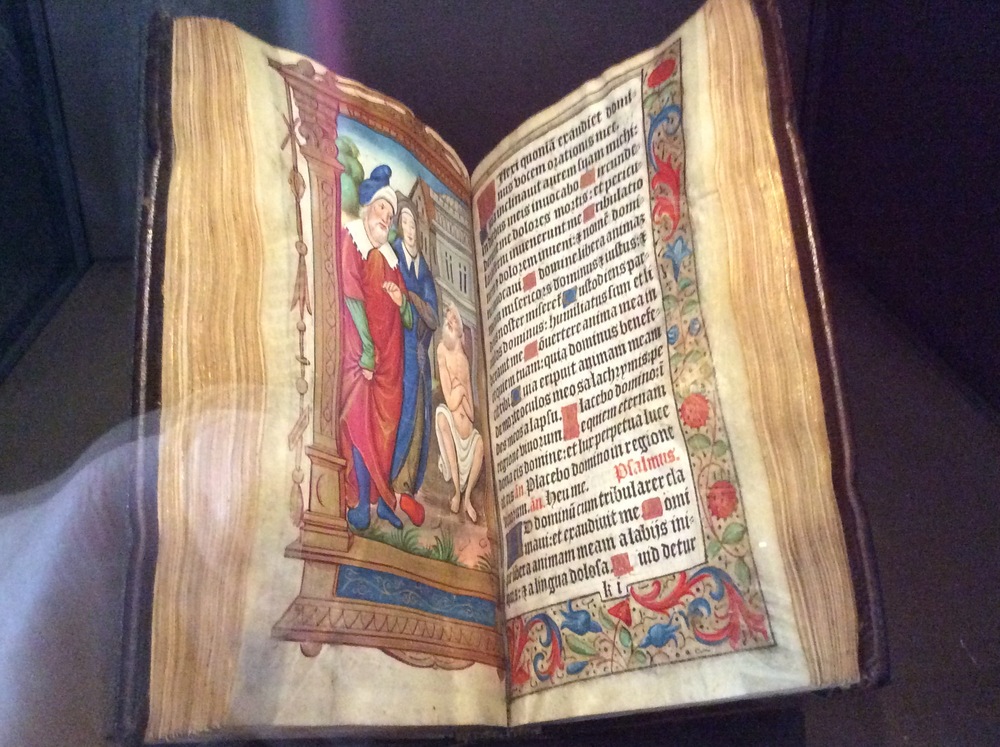 ilexi quoniā exaudiet domi-
nus vocem orationis mee.
inclinauit aurem suam michi:
meis inuocabo Circunde-
me dolores mortis: et pericu-
inuenerunt me Tribulatio
dolorem inueni: ⁊ nomē domi-
domine libera animā
misericors dominus ⁊ iustus: ⁊
noster Custodiens par-
dominus: humiliatus sum et li-
me Cōuertere anima mea in
tuam: quia dominus benefe-
tibi Quia eripuit animam meam
oculos meos a lachrymis: pe-
des meos a lapsu. Placebo domino: ī
regione viuorum Requiem eternam
dona eis domine: et lux perpetua luce
at eis an. Placebo domino in regione
viuorum. an. Heu me. Psalmus.
AD dominū cum tribularer cla
maui: et exaudiuit me Domi
ne libera animam meam a labijs ini-
quis: ⁊ a lingua dolosa. Quid detur
k i